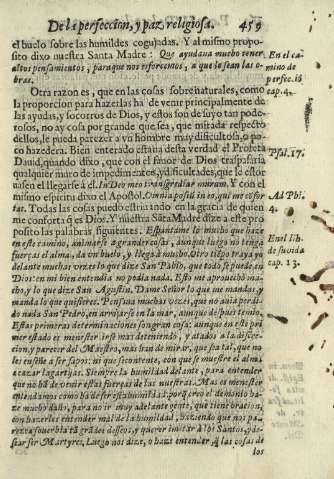 De la perfeccion, y paz religiosa. 459
el buelo sobre las humildes cogujadas. Y al mismo propo-
sito dixo nuestra Santa Madre: Que ayudaua mucho tener
altos pensamientos, para que nos esforcemos, a que lo sean las o-
bras.
En el ca-
mino de
perfec.
cap. 4.
Otra razon es, que en las cosas sobrenaturales, como
la proporcion para hazerlas ha de venir principalmente de
las ayudas, y socorros de Dios, y estos son de suyo tan pode-
rosos, no ay cosa por grande que sea, que mirada respecto
dellos, le pueda parecer a vn hombre muy dificultosa, o po-
co hazedera. Bien enterado estaua desta verdad el Profeta
Dauid, quando dixo, que con el fauor de Dios traspassaria
qualquier muro de impedimentos, y dificultades, que le estor
uassen el llegarse à el. In Deo meo transgrediar murum. Y con el
Psal. 17.
mismo espiritu dixo el Apostol. Omnia possum in eo, qui me confor
tat. Todas las cosas puedo estriuando en la gracia de quien
me conforta, que es Dios. Y nuestra Sãta Madre dize a este pro
posito las palabras siguientes. Espantame lo mucho que haze
Ad Phi.
4.
en este camino, animarse a grandes cosas, aunque luego no tenga
fuerças el alma, da vn buelo, y llega a mucho. Otro tiẽpo traya
delante muchas vezes lo que dize San Pablo, que todo se puede en
Dios: en mi bien entendia no podia nada. Esto me aprouechò mu-
cho, y lo que dize San Agustin, Dame Señor lo que me mandas, y
manda lo que quisieres. Pensaua muchas vezes, que no auia perdi-
do nada San Pedro, en arrojarse en la mar, aunque despues temio.
En el li-
de su vida
cap. 13.
Estas primeras determinaciones son gran cosa: aunque en este pri
mer estado es menester irse mas deteniendo, y atados a la discre-
cion, y parecer del Maestro, mas han de mirar, que sea tal, que no
les enseñe a ser sapos: ni que se contente, con que se muestre el alma
a cazar lagartijas. Siempre la humildad delante, para entender
que no hã de venir estas fuerças de las nuestras. Mas es menester
entendamos como ha de ser esta humildad: porq̃ creo el demonio ha-
ze mucho daño, para no ir muy adelante gente, que tiene oracion,
con hazerles entender mal de la humildad, haziendo que nos pa-
rezca soueruia tẽ grãdes desseos, y querer imitar a los Santos, y des-
sear ser Martyres. Luego nos dize, o haze entender, q̃ las cosas de
los